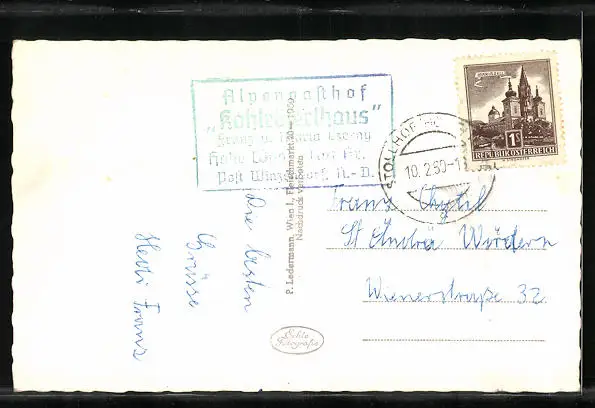 Alpengasthof
„Kohlröserlhaus"
Franz u. Maria Czerny
Hohe Wand
Post Winzendorf, N.-D.
P. Ledermann, Wien I., Fleischmarkt 20 — 1959
Nachdruck verboten
STOLLHOF
10.2.60-1
MARIAZELL
1S
REPUBLIK ÖSTERREICH
Franz Chytil
St Andrä Wördern
Wienerstraße 32
Die besten
Grüsse
Hedi Franz
Echte
Fotografie